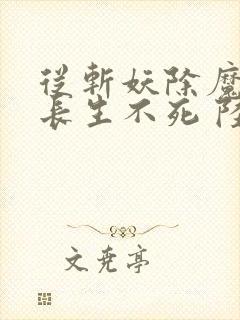 從斬妖除魔
長生不死 陸
文尭亭